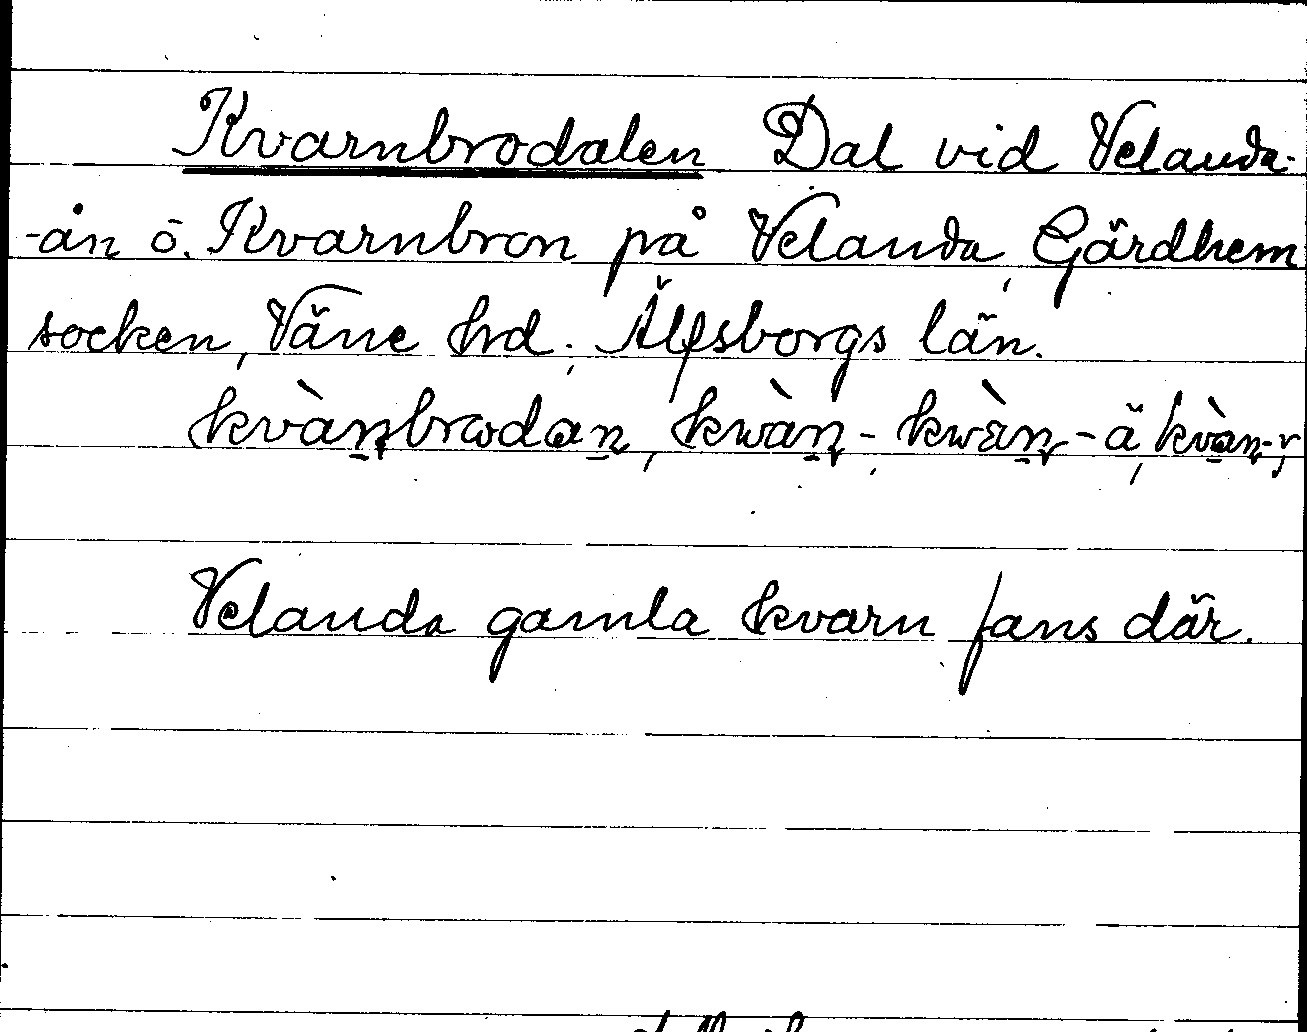 Kvarnbrodalen Dal vid Velanda-
-ån ö. Kvarnbron på Velanda, Gärdhem
socken, Väne hrd, Älfsborgs län.
kvànbrodan, kwàn-, kwàn- ä, kvàn-
Velanda gamla kvarn fans där.